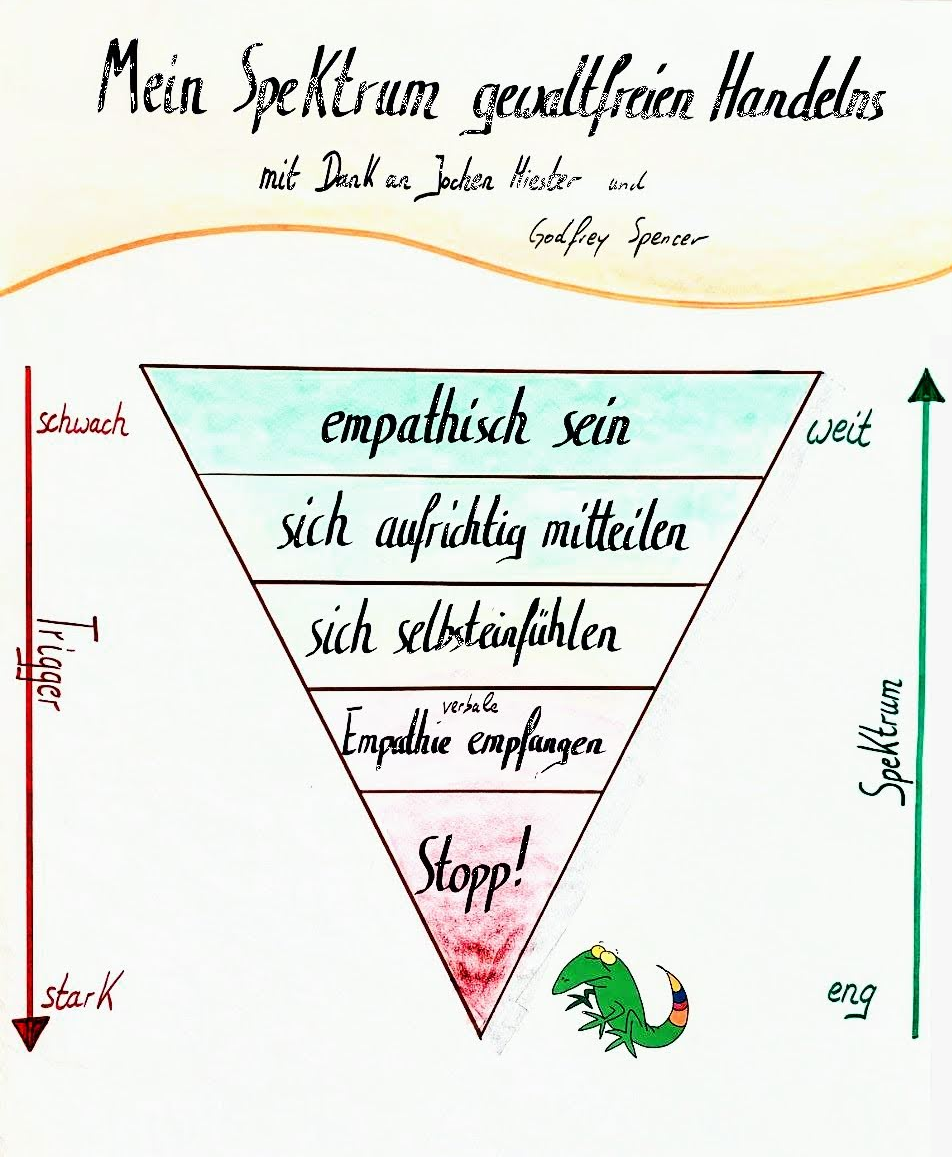 Mein Spektrum gewaltfreien Handelns
mit Dank an Jochen Hiester und
Godfrey Spencer
schwach
empathisch sein
weit
sich aufrichtig mitteilen
sich selbsteinfühlen
Trigger
verbale
Empathie empfangen
Spektrum
Stopp!
stark
eng